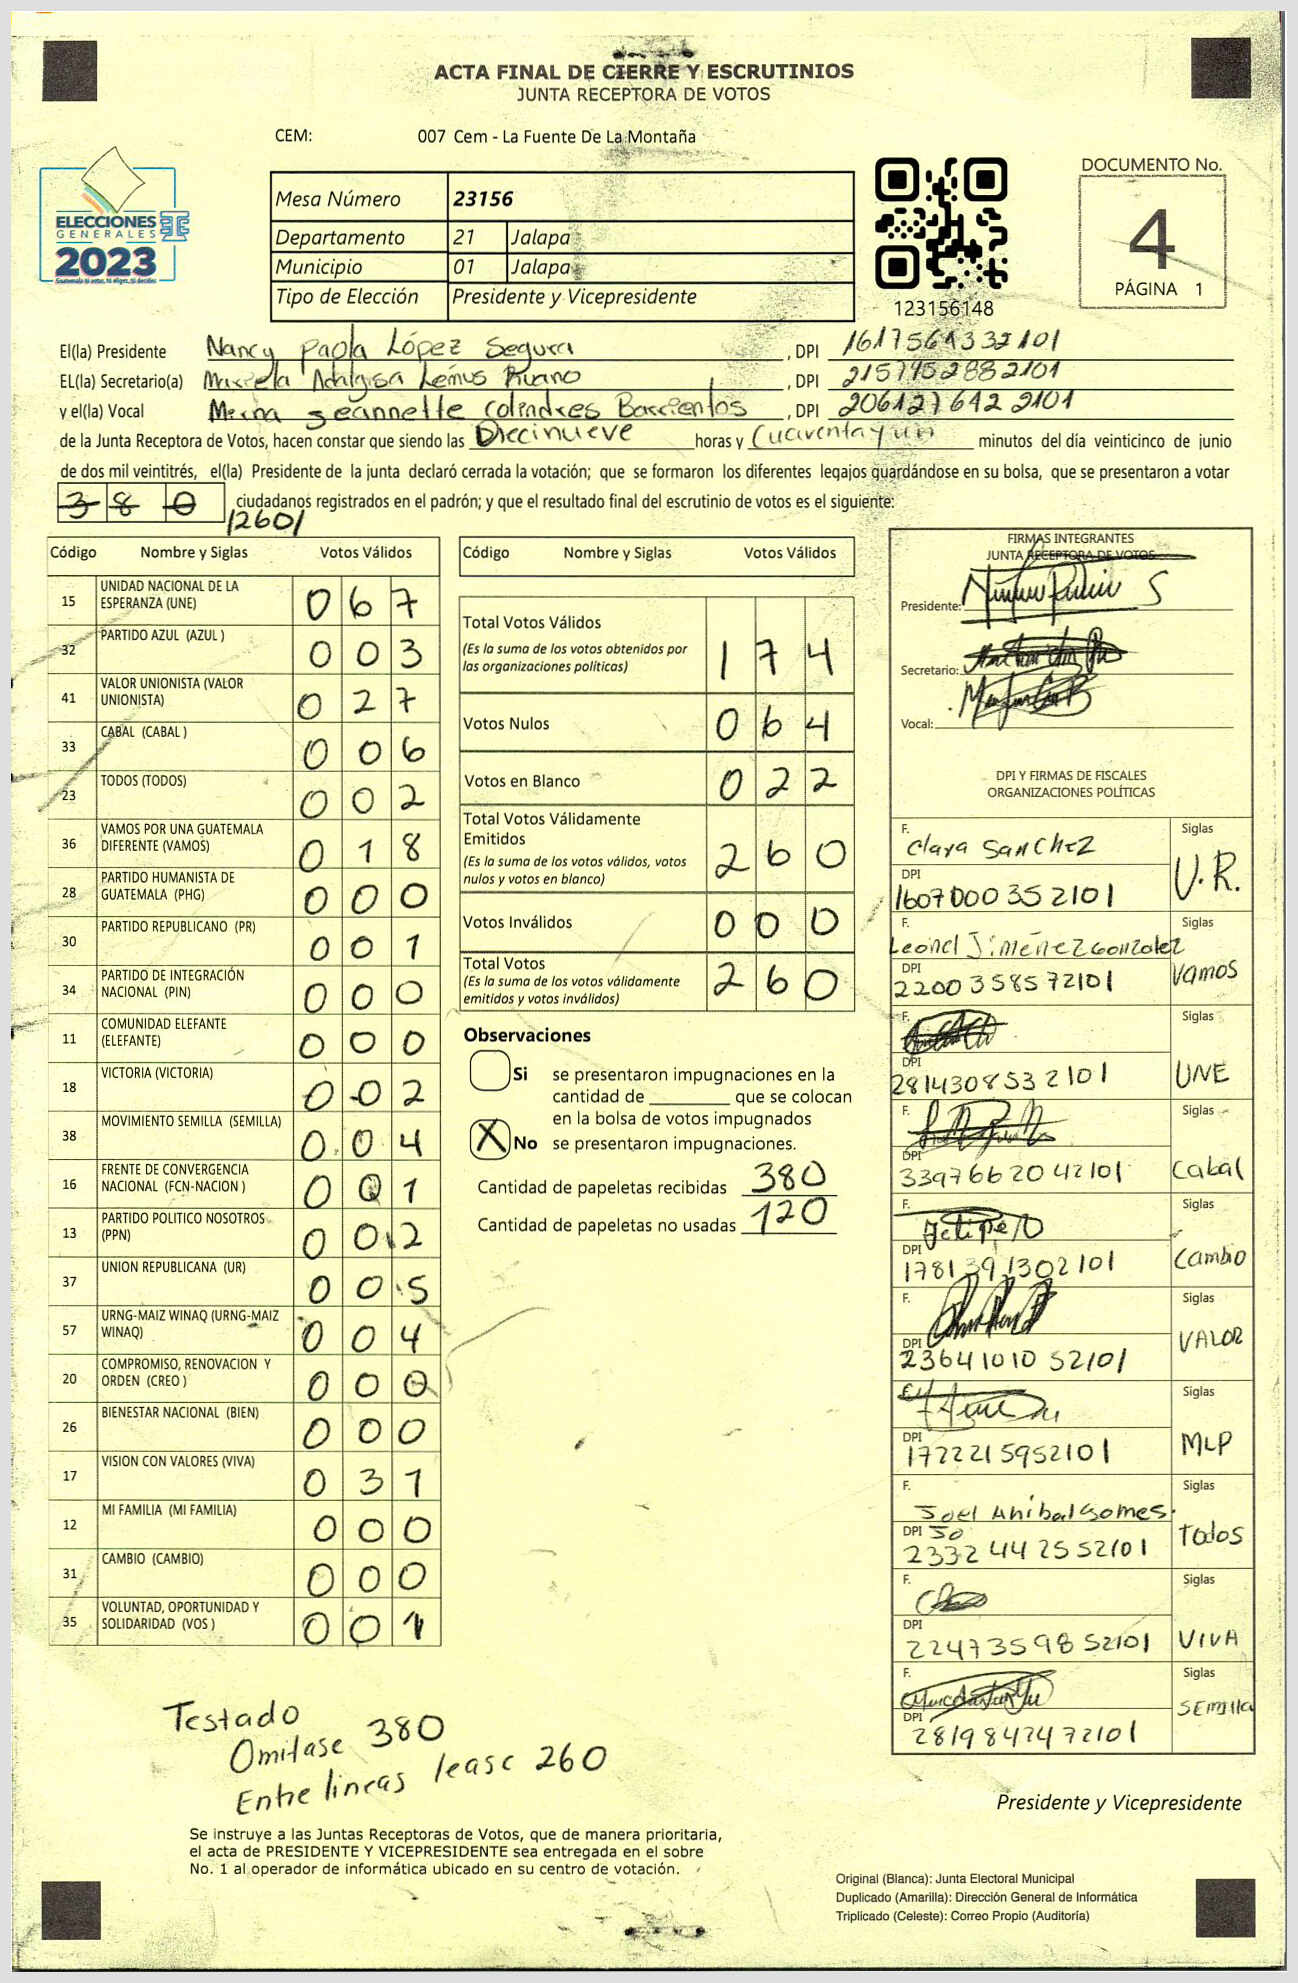 ACTA FINAL DE CIERRE Y ESCRUTINIOS
JUNTA RECEPTORA DE VOTOS
CEM: 007 Cem - La Fuente De La Montaña
ELECCIONES
GENERALES
2023
Mesa Número 23156
Departamento 21 Jalapa
Municipio 01 Jalapa
Tipo de Elección Presidente y Vicepresidente
123156148
DOCUMENTO No.
4
PÁGINA 1
El(la) Presidente Nancy Paola López Segura , DPI 1617564332101
EL(la) Secretario(a) Adalgisa Lemus Ruano , DPI 2157452882101
y el(la) Vocal Mirna Jeannette Colindres Barrientos , DPI 2061276422101
de la Junta Receptora de Votos, hacen constar que siendo las Diecinueve horas y Cuarenta y un minutos del día veinticinco de junio
de dos mil veintitrés, el(la) Presidente de la junta declaró cerrada la votación; que se formaron los diferentes legajos guardándose en su bolsa, que se presentaron a votar
380 ciudadanos registrados en el padrón; y que el resultado final del escrutinio de votos es el siguiente:
/260/
Código Nombre y Siglas Votos Válidos
15 UNIDAD NACIONAL DE LA ESPERANZA (UNE) 067
32 PARTIDO AZUL (AZUL ) 003
41 VALOR UNIONISTA (VALOR UNIONISTA) 027
33 CABAL (CABAL ) 006
23 TODOS (TODOS) 002
36 VAMOS POR UNA GUATEMALA DIFERENTE (VAMOS) 018
28 PARTIDO HUMANISTA DE GUATEMALA (PHG) 000
30 PARTIDO REPUBLICANO (PR) 001
34 PARTIDO DE INTEGRACIÓN NACIONAL (PIN) 000
11 COMUNIDAD ELEFANTE (ELEFANTE) 000
18 VICTORIA (VICTORIA) 002
38 MOVIMIENTO SEMILLA (SEMILLA) 004
16 FRENTE DE CONVERGENCIA NACIONAL (FCN-NACION ) 001
13 PARTIDO POLITICO NOSOTROS (PPN) 002
37 UNION REPUBLICANA (UR) 005
57 URNG-MAIZ WINAQ (URNG-MAIZ WINAQ) 004
20 COMPROMISO, RENOVACION Y ORDEN (CREO ) 000
26 BIENESTAR NACIONAL (BIEN) 000
17 VISION CON VALORES (VIVA) 031
12 MI FAMILIA (MI FAMILIA) 000
31 CAMBIO (CAMBIO) 000
35 VOLUNTAD, OPORTUNIDAD Y SOLIDARIDAD (VOS ) 001
Código Nombre y Siglas Votos Válidos
Total Votos Válidos 174
(Es la suma de los votos obtenidos por
las organizaciones políticas)
Votos Nulos 064
Votos en Blanco 022
Total Votos Válidamente
Emitidos 260
(Es la suma de los votos válidos, votos
nulos y votos en blanco)
Votos Inválidos 000
Total Votos 260
(Es la suma de los votos válidamente
emitidos y votos inválidos)
Observaciones
Si se presentaron impugnaciones en la
cantidad de ________ que se colocan
en la bolsa de votos impugnados
X No se presentaron impugnaciones.
Cantidad de papeletas recibidas 380
Cantidad de papeletas no usadas 120
FIRMAS INTEGRANTES
JUNTA RECEPTORA DE VOTOS
Presidente:
Secretario:
Vocal:
DPI Y FIRMAS DE FISCALES
ORGANIZACIONES POLÍTICAS
F. Clara Sanchez Siglas
DPI 1607000352101 U.R.
F. Leonel Jiménez Gonzolez Siglas
DPI 2200358572101 Vamos
F. Siglas
DPI 2814308532101 UNE
F. Siglas
DPI 3397662042101 Cabal
F. Felipe O Siglas
DPI 1781391302101 Cambio
F. Siglas
DPI 2364101052101 VALOR
F. Siglas
DPI 1722215952101 MLP
F. Joel Anibal Gomes. Siglas
DPI 50
2332442552101 Todos
F. Siglas
DPI 2247359852101 VIVA
F. Siglas
DPI 2819842472101 SEMIlla
Testado
Omitase 380
Entre lineas lease 260
Presidente y Vicepresidente
Se instruye a las Juntas Receptoras de Votos, que de manera prioritaria,
el acta de PRESIDENTE Y VICEPRESIDENTE sea entregada en el sobre
No. 1 al operador de informática ubicado en su centro de votación.
Original (Blanca): Junta Electoral Municipal
Duplicado (Amarilla): Dirección General de Informática
Triplicado (Celeste): Correo Propio (Auditoría)